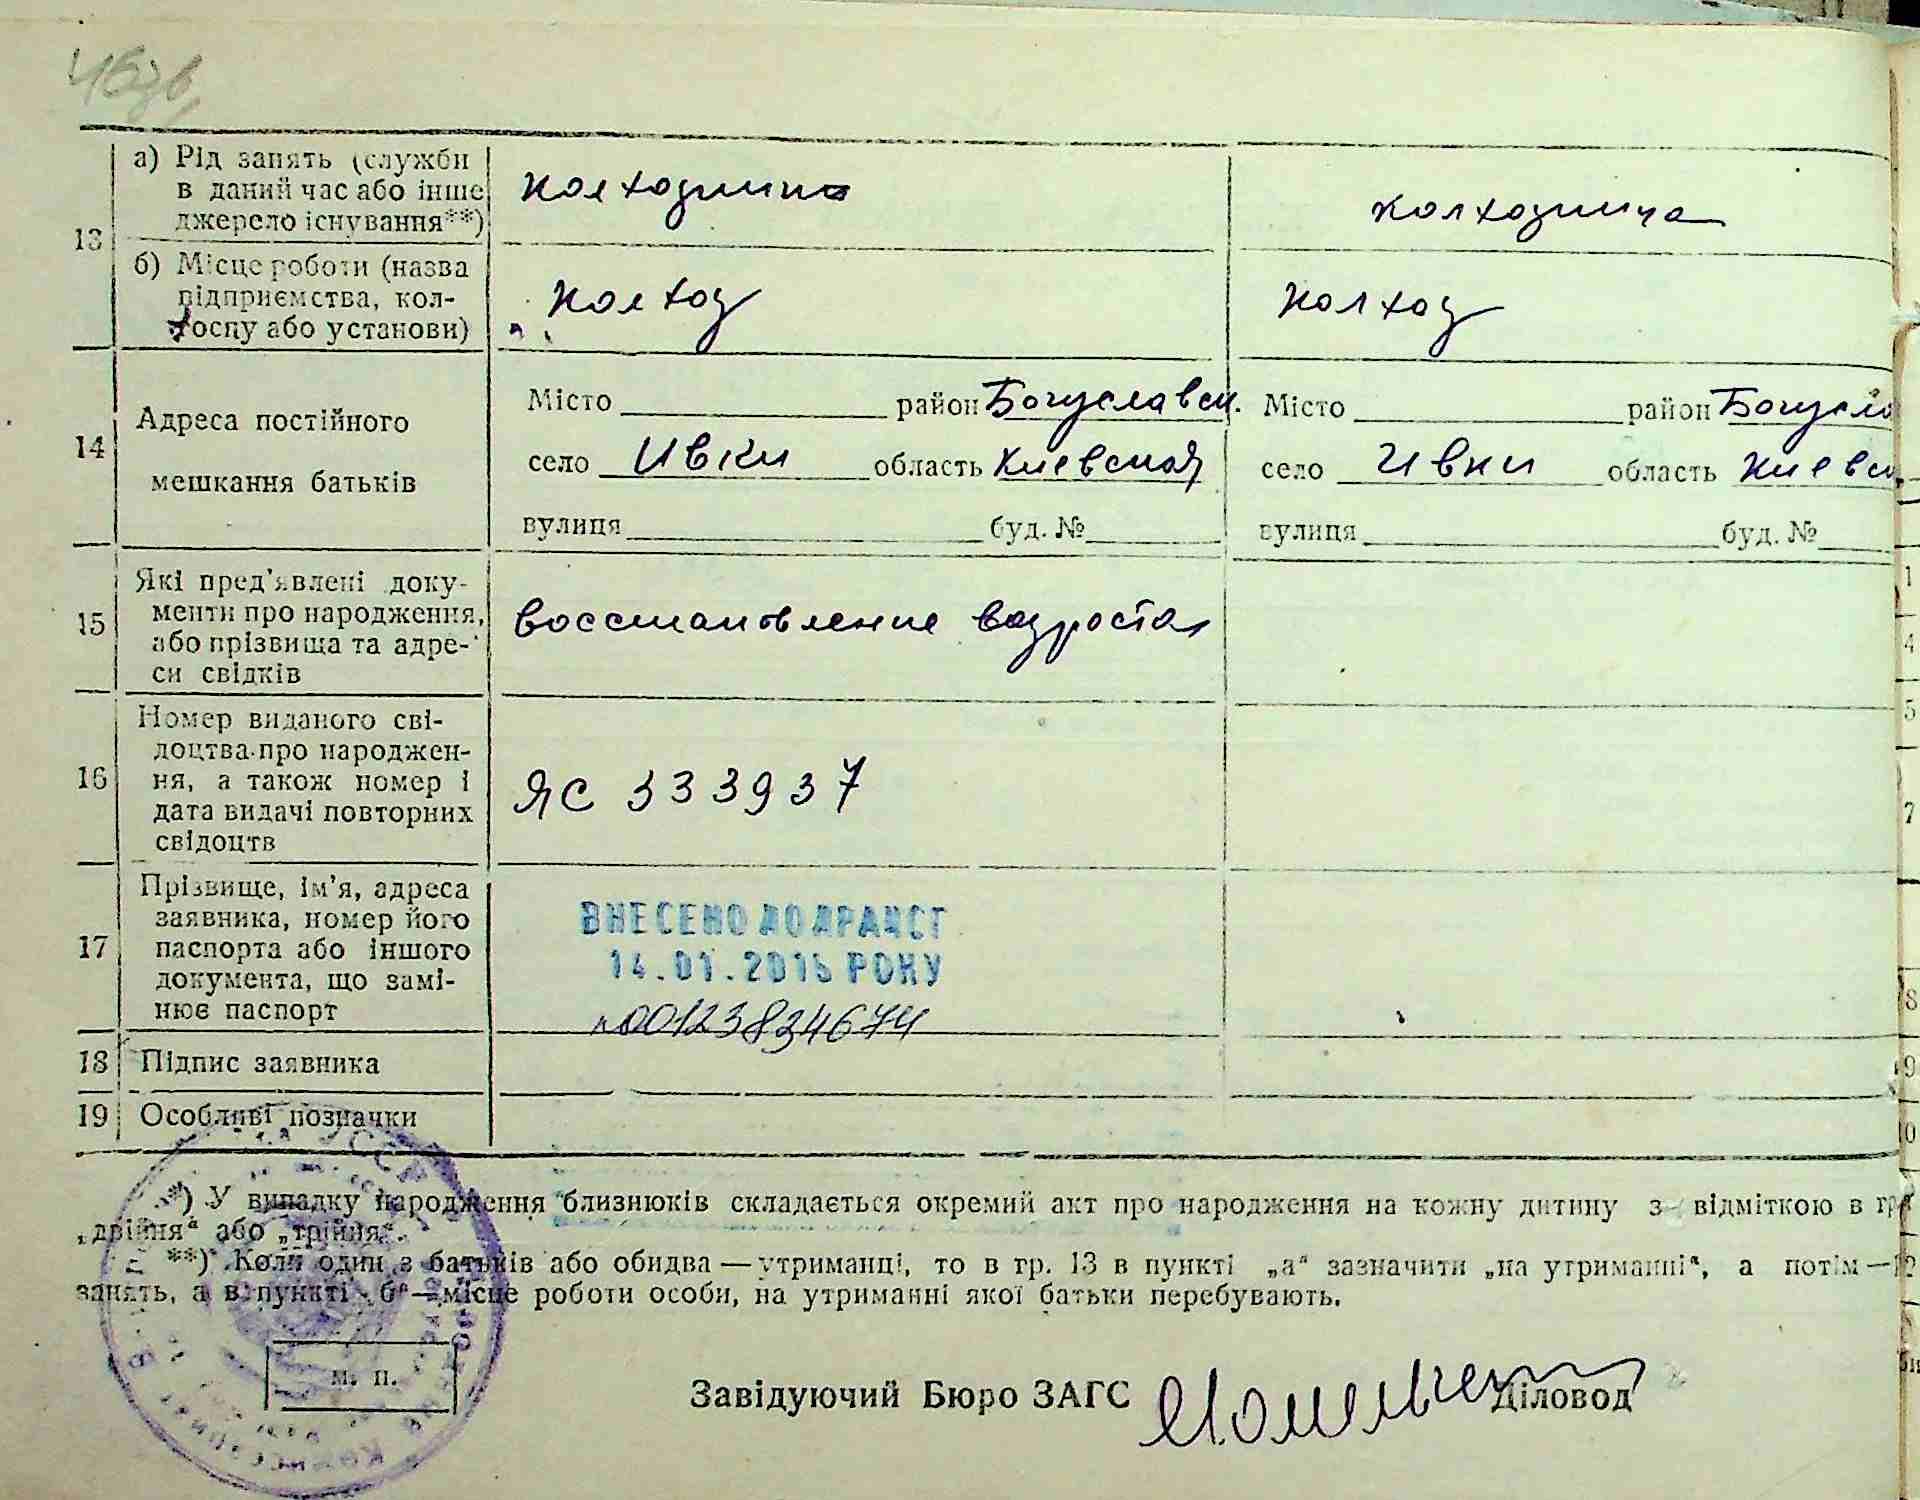 46зв
13 а) Рід занять (служби в даний час або інше джерело існування**)
колхозник
колхозница
б) Місце роботи (назва підприємства, колгоспу або установи)
колхоз
колхоз
14 Адреса постійного мешкання батьків
Місто район Богуславск. Місто район Богусла
село Ивки область Киевская село Ивки область Киевск
вулиця буд. № вулиця буд. №
15 Які пред'явлені документи про народження, або прізвища та адреси свідків
восстановление возроста
16 Номер виданого свідоцтва про народження, а також номер і дата видачі повторних свідоцтв
ЯС 333937
17 Прізвище, ім'я, адреса заявника, номер його паспорта або іншого документа, що замінює паспорт
ВНЕСЕНО ДО ДРАЦСГ
14.01.2015 РОКУ
00123834674
18 Підпис заявника
19 Особливі позначки
*) У випадку народження близнюків складається окремий акт про народження на кожну дитину з відміткою в гр
„двійня" або „трійня".
**) Коли один з батьків або обидва — утриманці, то в гр. 13 в пункті „а" зазначити „на утриманні", а потім —
занять, а в пункті „б" — місце роботи особи, на утриманні якої батьки перебувають.
м. п.
Завідуючий Бюро ЗАГС Діловод